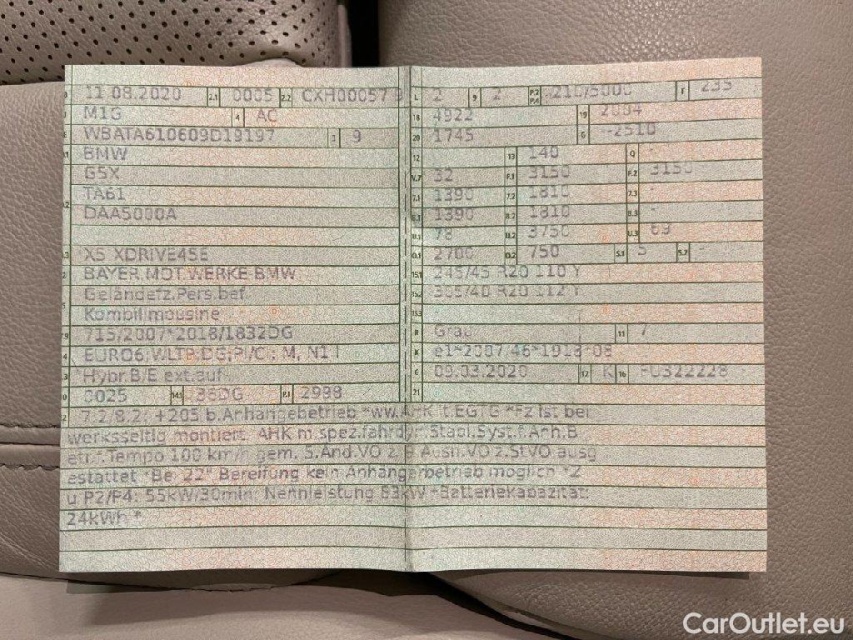 11.08.2020 2.1 0005 2.2 CXH00057 9
M1G 4 AC
WBATA610609D19197 3 9
BMW
G5X
TA61
DAA5000A
X5 XDRIVE45E
BAYER.MOT.WERKE-BMW
Geländefz.Pers.bef
Kombilimousine
715/2007*2018/1832DG
EURO6;WLTP;DG;PI/CI; M, N1 I
Hybr.B/E ext.auf
0025 14.1 36DG P.1 2998
L 2 9 2 P.2 P.4 210/5000 T 235
18 4922 19 2004
20 1745 G -2510
12 - 13 140 Q -
V.7 32 F.1 3150 F.2 3150
7.1 1390 7.2 1810 7.3 -
8.1 1390 8.2 1810 8.3 -
U.1 78 U.2 3750 U.3 69
O.1 2700 O.2 750 S.1 5 S.2 -
15.1 245/45 R20 110 Y
15.2 305/40 R20 112 Y
15.3
R Grau 11 7
K e1*2007/46*1918*08
6 09.03.2020 17 K 16
21
7.2/8.2: +205 b.Anhängebetrieb *ww.AHK lt.EGTG *Fz ist bei
werksseitig montiert. AHK m.spez.fahrdyn.Stabi.Syst.f.Anh.B
etr.f.Tempo 100 km/h gem. 5.Änd.VO z. 9.Ausn.VO z.StVO ausg
estattet *Bei 22" Bereifung kein Anhängerbetrieb möglich *Z
u P2/P4: 55kW/30min; Nennleistung 83kW *Batteriekapazität:
24kWh *
CarOutlet.eu